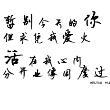 暂别今天的你
但求凭我爱火
活在我心内
分开也像同度过